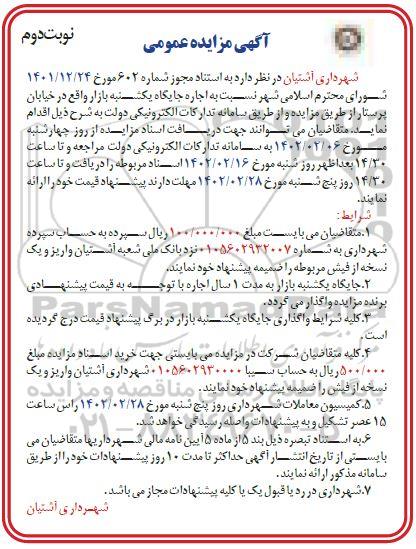 آگهی مزایده عمومی
نوبت دوم
شهرداری آشتیان در نظر دارد به استناد مجوز شماره ۶۰۲ مورخ ۱۴۰۱/۱۲/۲۴
شورای محترم اسلامی شهر نسبت به اجاره جایگاه یکشنبه بازار واقع در خیابان
پرستار از طریق مزایده و از طریق سامانه تدارکات الکترونیکی دولت به شرح ذیل اقدام
نماید. متقاضیان می توانند جهت دریافت اسناد مزایده از روز چهارشنبه
مورخ ۱۴۰۲/۰۲/۰۶ به سامانه تدارکات الکترونیکی دولت مراجعه و تا ساعت
۱۴/۳۰ بعداظهر روز شنبه مورخ ۱۴۰۲/۰۲/۱۶ اسناد مربوطه را دریافت و تا ساعت
۱۴/۳۰ روز پنج شنبه مورخ ۱۴۰۲/۰۲/۲۸ مهلت دارند پیشنهاد قیمت خود را ارائه
نمایند.
شرایط:
۱.متقاضیان می بایست مبلغ ۱۰۰/۰۰۰/۰۰۰ ریال سپرده به حساب سپرده
شهرداری به شماره ۰۱۰۵۶۰۲۹۳۲۰۰۷ نزد بانک ملی شعبه آشتیان واریز و یک
نسخه از فیش مربوطه را ضمیمه پیشنهاد خود نمایند.
۲.جایگاه یکشنبه بازار به مدت ۱ سال اجاره با توجه به قیمت پیشنهادی
برنده مزایده واگذار می گردد.
۳.کلیه شرایط واگذاری جایگاه یکشنبه بازار در برگ پیشنهاد قیمت درج گردیده
است.
۴.کلیه متقاضیان شرکت در مزایده می بایستی جهت خرید اسناد مزایده مبلغ
۵۰۰/۰۰۰ ریال به حساب سیبا ۰۱۰۵۶۰۲۹۳۰۰۰۰ شهرداری آشتیان واریز و یک
نسخه از فیش را ضمیمه پیشنهاد خود نمایند.
۵.کمیسیون معاملات شهرداری روز پنج شنبه مورخ ۱۴۰۲/۰۲/۲۸ راس ساعت
۱۵ عصر تشکیل و به پیشنهادات واصله رسیدگی خواهد شد.
۶.به استناد تبصره ذیل بند ۵ از ماده ۵ آیین نامه مالی شهرداریها متقاضیان می
بایستی از تاریخ انتشار آگهی حداکثر تا مدت ۱۰ روز پیشنهادات خود را از طریق
سامانه مذکور ارائه نمایند.
۷.شهرداری در رد یا قبول یک یا کلیه پیشنهادات مجاز می باشد.
شهرداری آشتیان